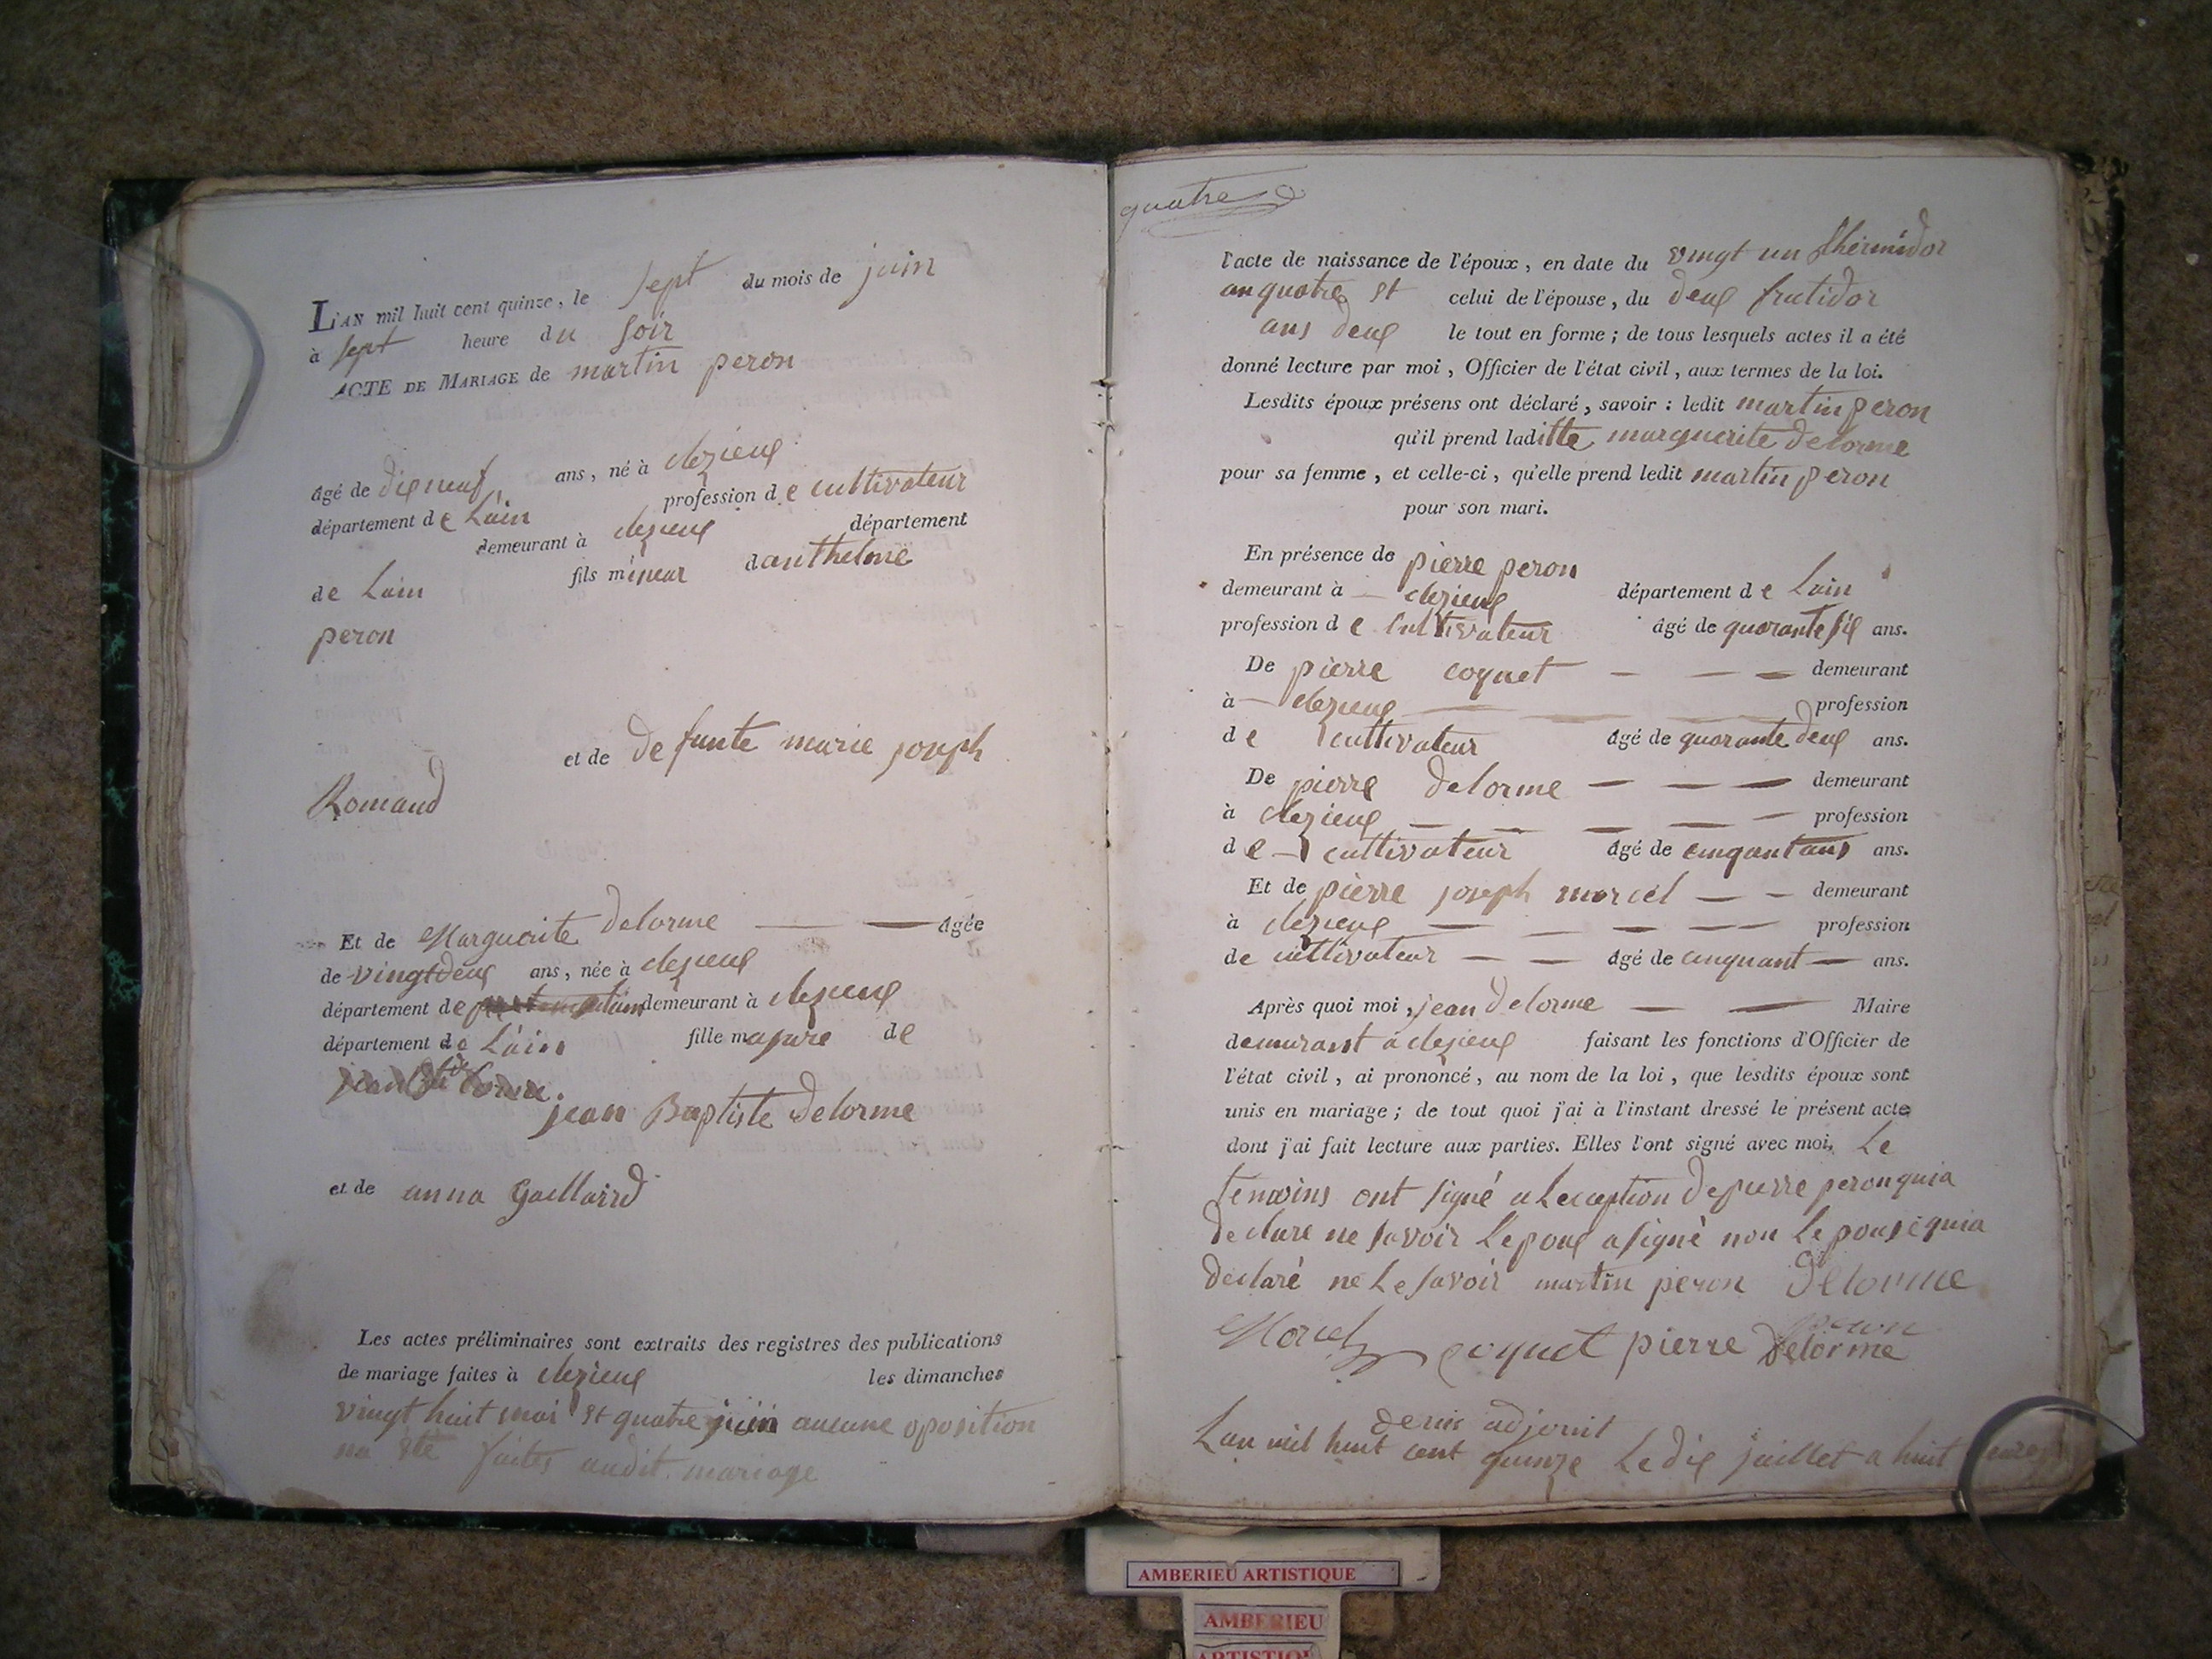 L'AN mil huit cent quinze, le sept du mois de juin
à sept heure du soir
ACTE DE MARIAGE de martin peron
âgé de dieneuf ans, né à clezieug
département de Lain profession de cultivateur
demeurant à clezieug département
de Lain fils mineur danthelme
peron
et de defunte marie joseph
Romand
Et de Marguerite delorme — — âgée
de vingtdeug ans, née à clezieug
département de demeurant à clezieug
département de Lain fille majure de
jean Baptiste delorme
et de anna Gaillaird
Les actes préliminaires sont extraits des registres des publications
de mariage faites à clezieug les dimanches
vingt huit mai et quatre juin aucune oposition
na été faites audit mariage
quatre
l'acte de naissance de l'époux, en date du vingt un thermidor
an quatre et celui de l'épouse, du deug frutidor
ans deug le tout en forme; de tous lesquels actes il a été
donné lecture par moi, Officier de l'état civil, aux termes de la loi.
Lesdits époux présens ont déclaré, savoir: ledit martin peron
qu'il prend laditte marguerite delorme
pour sa femme, et celle-ci, qu'elle prend ledit martin peron
pour son mari.
En présence de pierre peron
demeurant à — clezieug département de Lain
profession de cultivateur âgé de quarante sig ans.
De pierre coquet — — — demeurant
à — clezieug — profession
de cultivateur âgé de quarante deug ans.
De pierre delorme — — — demeurant
à clezieug — — — — — profession
de — cultivateur âgé de cinqantans ans.
Et de pierre joseph morcel — — demeurant
à clezieug — — — — — profession
de cultivateur — — âgé de cinquant — ans.
Après quoi moi, jean delorme — — Maire
demurant a clezieug faisant les fonctions d'Officier de
l'état civil, ai prononcé, au nom de la loi, que lesdits époux sont
unis en mariage; de tout quoi j'ai à l'instant dressé le présent acte
dont j'ai fait lecture aux parties. Elles l'ont signé avec moi, Le
temoins ont signé a Leception de pierre peron quia
declare ne savoir Lepoug a signé non Lepouse quia
declaré ne Le savoir martin peron Delorme
Morcel coquet pierre Delorme
peron
denis adjoint
Lan mil huit cent quinze Le dig juillet a huit heures
AMBERIEU ARTISTIQUE
AMBERIEU
ARTISTIQUE